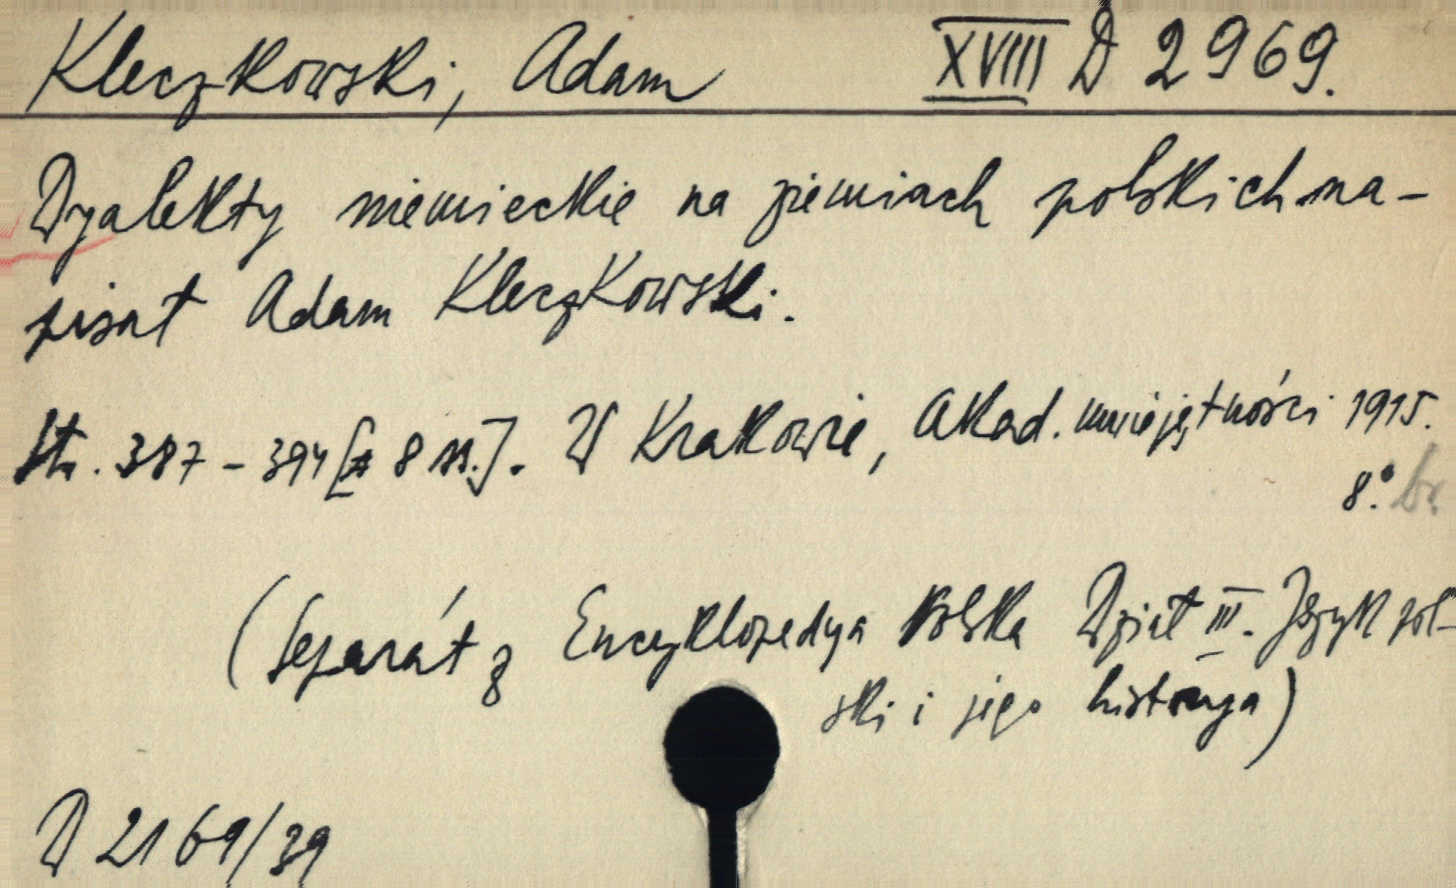 Kleczkowski, Adam XVIII D 2969.
Dyalekty niemieckie na ziemiach polskich na-
pisał Adam Kleczkowski.
Str. 387-394 [8 ss.]. W Krakowie, Akad. umiejętności 1915.
8°.
(Separát z Encyklopedya Polska Dział III. Język pol-
ski i jego historya)
D 2169/39